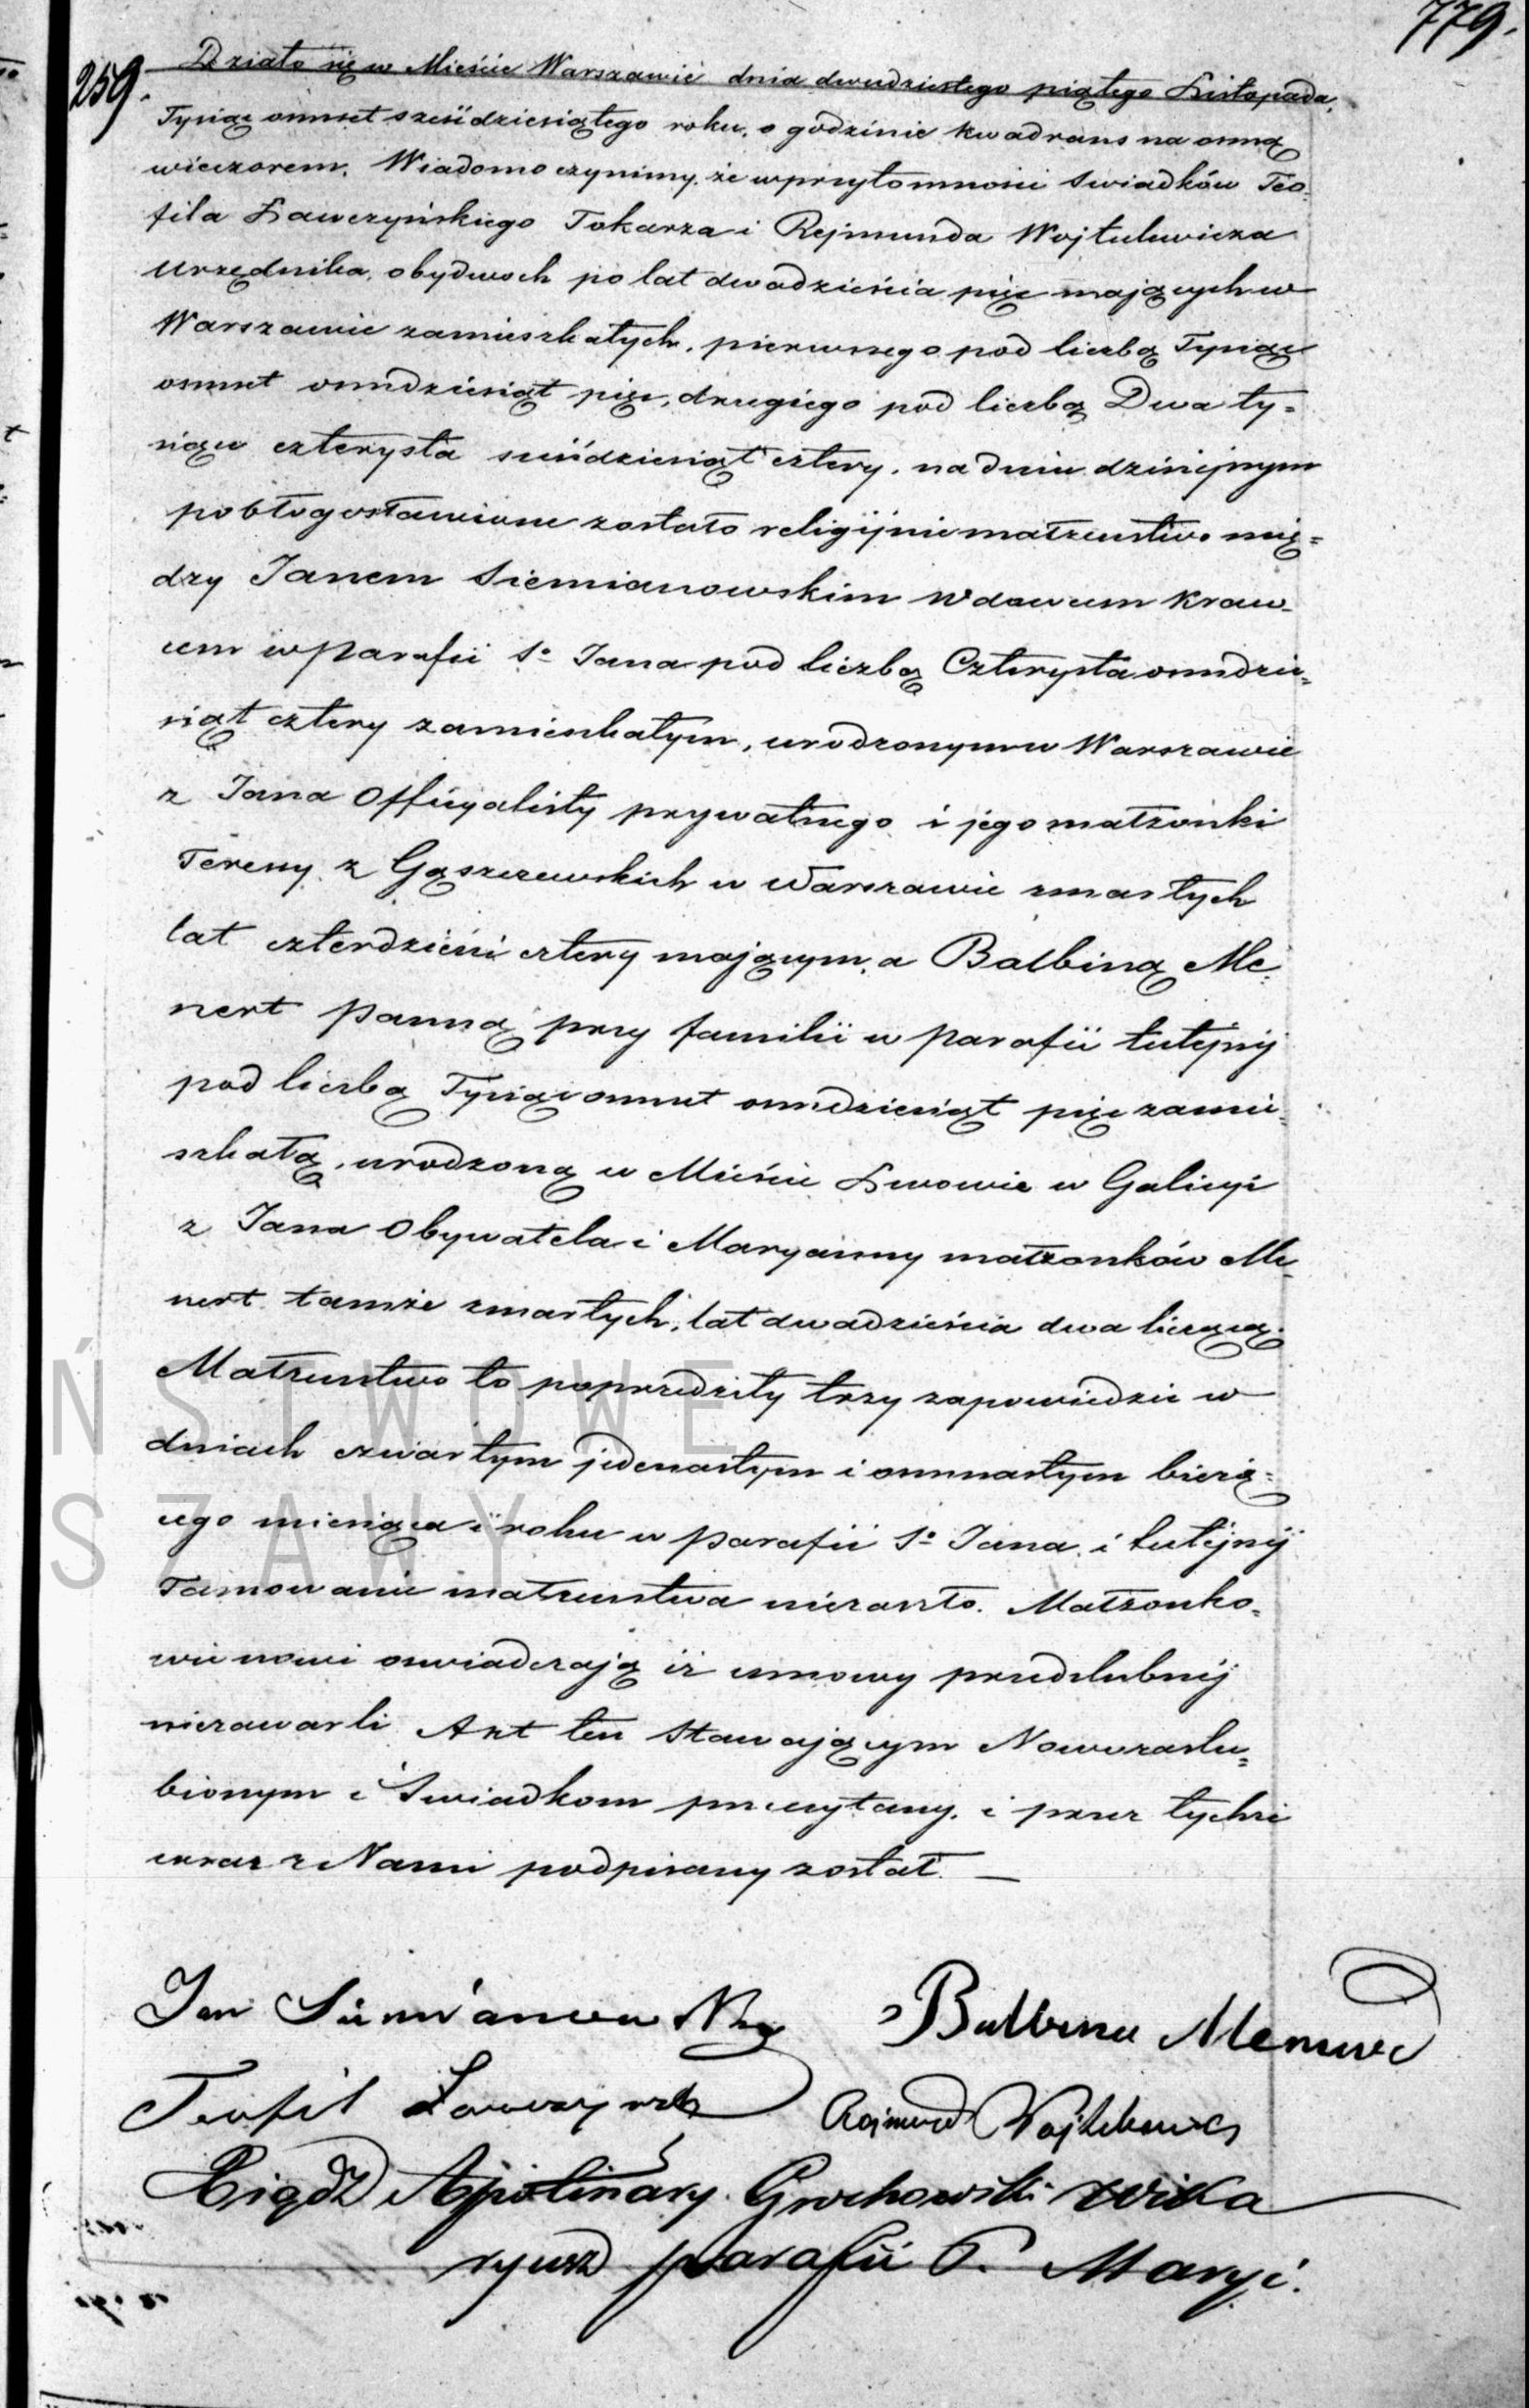 779.
259. Działo się w Mieście Warszawie dnia dwudziestego piątego Listopada,
Tysiąc ośmset sześćdziesiątego roku, o godzinie kwadrans na osmą
wieczorem. Wiadomo czynimy, że w przytomności Swiadków Teo-
fila Ławczyńskiego Tokarza i Rejmunda Wojtulewicza
Urzędnika, obydwoch po lat dwadzieścia pięć mających w
Warszawie zamieszkałych, pierwszego pod liczbą Tysiąc
ośmset ośmdziesiąt pięć, drugiego pod liczbą Dwa ty=
siące czterysta sześćdziesiąt cztery, na dniu dzisiejszym
pobłogosławione zostało religijnie małżeństwo mię=
dzy Janem Siemianowskim Wdowcem Kraw-
cem w Parafii Sº Jana pod liczbą Czterysta ośmdzie=
siąt cztery zamieszkałym, urodzonym w Warszawie
z Jana Officyalisty prywatnego i jego małżonki
Teressy z Gąszczewskich w Warszawie zmarłych
lat czterdzieści cztery mającym, a Balbiną Me=
nert Panną przy familii w Parafii tutejszej
pod liczbą Tysiąc ośmset ośmdziesiąt pięć zamie=
szkałą, urodzoną w Mieście Lwowie w Galicyi
z Jana Obywatela i Maryanny małżonków Me-
nert tamże zmarłych, lat dwadzieścia dwa liczącą.
Małżeństwo to poprzedziły trzy zapowiedzie w
dniach czwartym jedenastym i ośmnastym bieżą=
cego miesiąca i roku w parafii Sº Jana i tutejszej
Tamowanie małżeństwa niezaszło. Małżonko=
wie nowi oswiadczają iż umowy przedślubnej
niezawarli. Akt ten Stawającym Nowozaślu=
bionym i Swiadkom przeczytany, i przez tychże
wraz z Nami podpisany został. —
Jan Siemianowski Balbina Menert
Teofil Ławczyński Rajmund Wojtulewicz
Xiądz Apolinary Grochowski Wika
ryusz parafii P. Maryi.
ŃSTWOWE
SZAWY